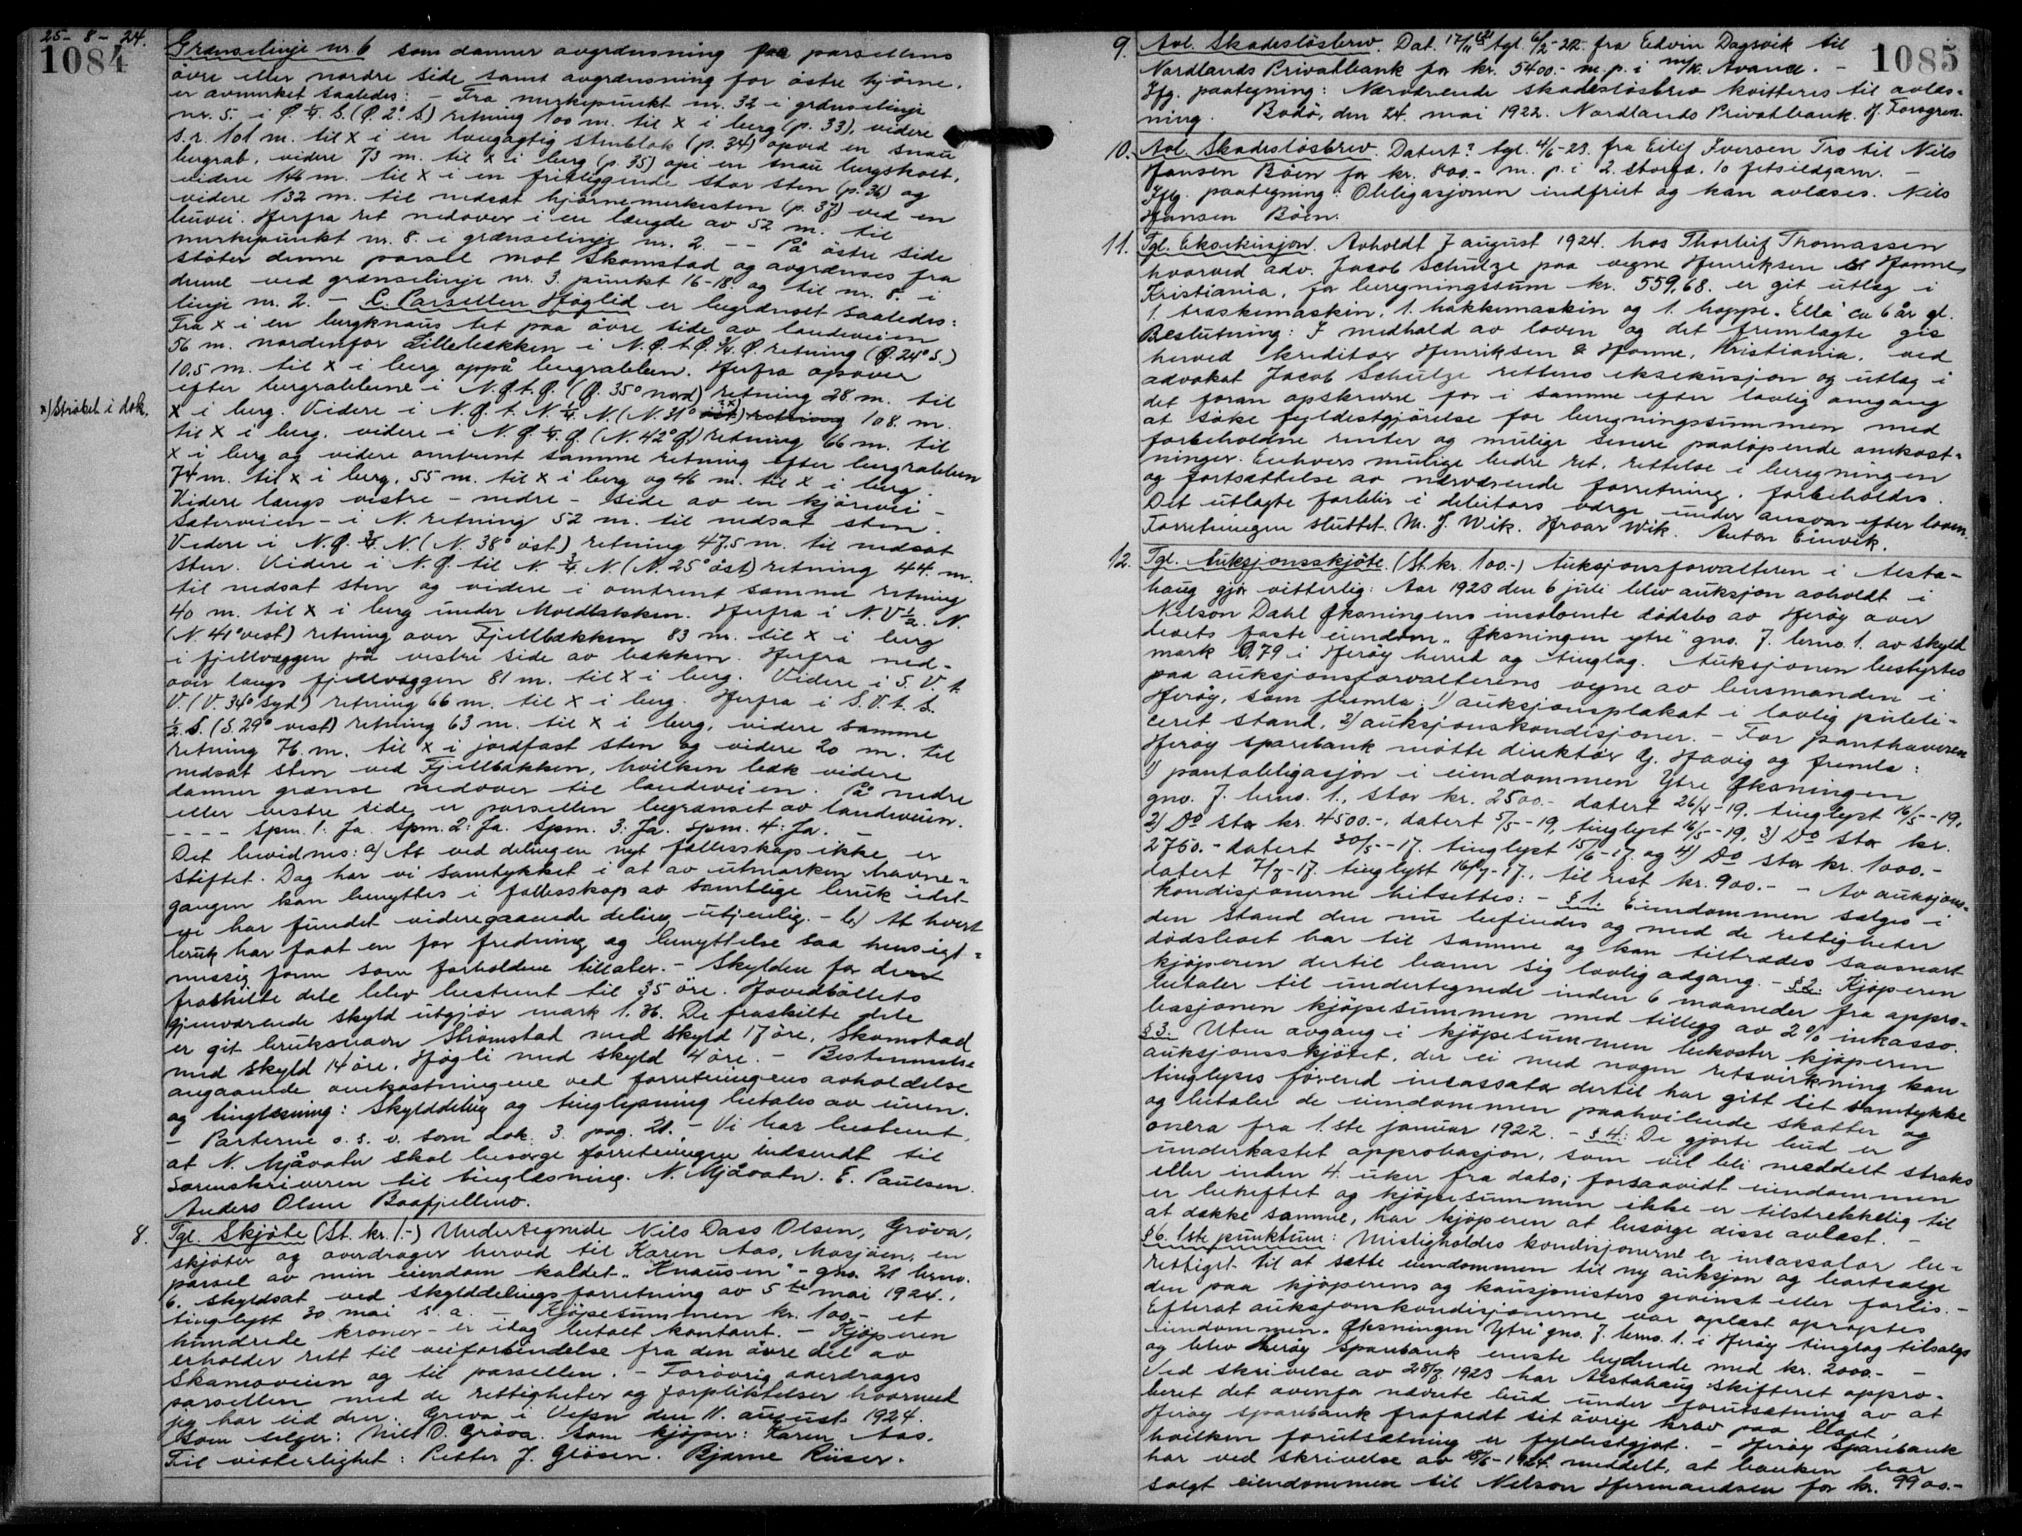 25-8-24.
1084
Grænselinje nr. 6 som danner avgrænsning paa parsellens
övre eller nordre side samt avgrænsning for östre hjörne,
er avmerket saaledes: - Fra merkepunkt nr. 32 i grænselinje
nr. 5. i Ø. ¼ S. (Ø. 2° S) retning 100 m. til x i berg (p. 33), videre
s.r. 101 m. til x i en langagtig stenblok (p. 34) opved en snau
bergrab, videre 73 m. til x i berg (p. 35) opi en snau bergskott,
videre 144 m. til x i en fritliggende stor sten (p. 36) og
videre 132 m. til nedsat hjörnemerkesten (p. 37) ved en
buvei. Herfra ret nedover i en længde av 52 m. til
merkepunkt nr. 8. i grænselinje nr. 2. - - På östre side
stöter denne parsel mot Skamstad og avgrænses fra
denne ved grænselinje nr. 3. punkt 16-18 og til nr. 8. i
linje nr. 2. - C. Parsellen Høglid er begrænset saaledes:
Fra x i en bergknaus tet paa övre side av landeveien
56 m. nordenfor Lillebækken i N.Ø.t.Ø. ¾ Ø. retning (Ø. 24° S.)
10.5 m. til x i berg oppå bergrabben. Herfra opover
efter bergrabbene i N.Ø.t.Ø. (Ø. 35° nord) retning 28 m. til
x) Ströket i dok.
x i berg. Videre i N.Ø.t. N ¼ N. (N. 31° öst) retning x) 108. m.
til x i berg. videre i N.Ø. ¼ Ø. (N. 42° Ø.) retning 66 m. til
x i berg og videre omtrent samme retning efter bergrabben
74 m. til x i berg, 55 m. til x i berg og 46 m. til x i berg.
Videre langs vestre - nedre - side av en kjörevei -
Sæterveien - i N. retning 52 m. til nedsat sten.
Videre i N.Ø. ¾ N (N. 38° öst) retning 47.5 m. til nedsat
sten. Videre i N.Ø. til N. ¾ N. (N. 25° öst) retning 44. m.
til nedsat sten og videre i omtrent samme retning
40 m. til x i berg under Moldbakken. Herfra i N.V ½ N.
(N. 41° vest) retning over Fjellbækken 83 m. til x i berg
i fjellvæggen på vestre side av bækken. Herfra ned-
over langs fjellvæggen 81 m. til x i berg. Videre i S.V. t.
V. (V. 34° syd) retning 66 m. til x i berg. Herfra i S.V.t. S.
½ S. (S. 29° vest) retning 63 m. til x i berg, videre samme
retning 76. m. til x i jordfast sten og videre 20 m. til
nedsat sten ved Fjellbækken, hvilken bæk videre
danner grænse nedover til landeveien. På nedre
eller vestre side er parsellen begrænset av landeveien.
- - - - Spm. 1: Ja. Spm. 2: Ja. Spm. 3: Ja. Spm. 4: Ja. -
Det bevidnes: a) At ved delingen nyt fællesskap ikke er
stiftet. Dog har vi samtykket i at av utmarken havne-
gangen kan benyttes i fællesskap av samtlige bruk idet
vi har fundet videregaaende deling utjenlig. - b) At hvert
bruk har faat en for fredning og benyttelse saa hensigt-
messig form som forholdene tillater. - Skylden for den
fraskilte dele blev bestemt til 35 öre. Hovedböllets
gjenværende skyld utgjör mark 1.36. De fraskilte dele
er git bruksnavn Strömstad med skyld 17 öre, Skamstad
med skyld 14 öre, Högli med skyld 4 öre. - Bestemmelse
angaaende omkostningene ved forretningens avholdelse
og tinglæsning: Skylddeling og tinglysning betales av eieren.
- Parterne o.s.v. som dok. 3. pag. 21. - Vi har bestemt,
at N. Mjåvatn skal besørge forretningen indsendt til
Sorenskriveren til tinglæsning. N. Mjåvatn. E. Paulsen.
Anders Olsen Baafjellmo.
8. Tgl. Skjöte (St. kr. 1.-) Undertegnede Nils Dass Olsen, Gröva,
skjöter og overdrager herved til Karen Aas, Mosjöen, en
parsel av min eiendom kaldet "Knausen" - gno. 21 brno.
6. skyldsat ved skylddelingsforretning av 5te mai 1924.,
tinglyst 30 mai s. a. - Kjöpesummen kr. 100.- et
hundrede kroner - er idag betalt kontant. - Kjöperen
erholder rett til veiforbindelse fra den övre del av
Skamoveien og til parsellen. - Forövrig overdrages
parsellen med de rettigheter og forpliktelser hvormed
jeg har eid den. Gröva i Vefsn den 11. august 1924.
Som selger: Nils D. Gröva. Som kjöper: Karen Aas.
Til vitterlighet: Petter J. Gröson. Bjarne Riiser.
1085
9. Avl. Skadeslösbrev. Dat. 17/11 tgl. 6/2-22. fra Edvin Dagsvik til
Nordlands Privatbank for kr. 5400.- m. p. i m/k. Avance. -
Hfg. paategning: Nærværende skadeslösbrev kvitteres til avlæs-
ning. Bodö, den 24. mai 1922. Nordlands Privatbank. H. Foregren.
10. Avl. Skadeslösbrev. Datert? tgl. 4/6-23. fra Eilif Iversen Tro til Nils
Hansen Böen for kr. 800.- m. p. i 2. storgd. 10 fetsildgarn. -
Hfg. paategning: Obligasjonen indfriet og kan avlæses. Nils
Hansen Böen.
11. Tgl. Eksekusjon. Avholdt 7 august 1924. hos Thorleif Thomassen
hvorved adv. Jacob Schulze paa vegne Henriksen & Hanne,
Kristiania, for beregningssum kr. 559,68. er git utlæg i
1. træskemaskin, 1. hakkemaskin og 1. hoppe "Ella" ca 6 år gl.
Beslutning: I medhold av loven og det fremlagte gis
herved kreditor Henriksen & Hanne, Kristiania. ved
advokat Jacob Schulze rettens eksekusjon og utlæg i
det foran opskrevne for i samme efter lovlig omgang
at söke fyldestgjörelse for beregningssummen med
forbeholdne renter og mulige senere paalöpende omkost-
ninger. Enhvers mulige bedre ret, rettelse i beregningen
og fortsættelse av nærværende forretning. forbeholdes.
Det utlagte forblir i debitors værge under ansvar efter loven.
Forretningen sluttet. M. J. Wik. Hroar Wik. Anton Einvik.
12. Tgl. Auksjonsskjöte. (St. kr. 100.-) Auksjonsforvalteren i Alsta-
haug gjör vitterlig: Aar 1923 den 6 juli blev auksjon avholdt i
Nelson Dahl Øksningens insolvente dödsbo av Heröy over
boets faste eiendom "Øksningen ytre" gno. 7. brno. 1. av skyld
mark 0,79 i Heröy herred og tinglag. Auksjonen bestyrtes
paa auksjonsforvalterens vegne av lensmanden i
Heröy, som fremla: 1) auksjonsplakat i lovlig publi-
cert stand, 2) auksjonskondisjoner. - For panthaveren
Heröy sparebank mötte direktör G. Havig og fremla:
1) pantobligasjon i eiendommen Ytre Øksningen
gno. 7. brno. 1., stor kr. 2500.- datert 26/4-19, tinglyst 16/5-19.
2) Do stor kr. 4500.-, datert 5/5-19, tinglyst 16/5-19, 3) Do stor kr.
2750.- datert 30/5-17. tinglyst 15/6-17. og 4) Do stor kr. 1000.-
datert 7/7-17. tinglyst 16/7-17, til rest kr. 900.- - Av auksjons-
kondisjonerne hitsettes: - § 1: Eiendommen sælges i
den stand den nu befindes og med de rettigheter
dödsboet har til samme og kan tiltrædes saasnart
kjöperen dertil baner sig lovlig adgang. - § 2: Kjöperen
betaler til undertegnede inden 6 maaneder fra appro-
basjonen kjöpesummen med tillegg av 2% inkasso.
§ 3. Uten avgang i kjöpesummen bekoster kjöperen
auksjonsskjötet, der ei med nogen retsvirkning kan
tinglyses förend incassator dertil har gitt sit samtykke
og betaler de eiendommen paahvilende skatter og
onera fra 1.ste januar 1922. - § 4: De gjorte bud er
underkastet approbasjon, som vil bli meddelt straks
eller inden 4. uker fra dato; forsaavidt eiendommen
er beheftet og kjöpesummen ikke er tilstrekkelig til
at dække samme, har kjöperen at besörge disse avlæst. -
§ 6. 1ste punktum: Misligholdes kondisjonerne er incassator be-
rettiget til at sætte eiendommen til ny auksjon og bortsælge
den paa kjöperens og kausjonisters gevinst eller forlis. -
Efterat auksjonskondisjonerne var oplæst opröptes
eiendommen "Øksningen Ytre" gno. 7. brno. 1. i Heröy tinglag tilsalgs
og blev Heröy Sparebank eneste bydende med kr. 2000.- -
Ved skrivelse av 28/7 1923 har Alstahaug skifteret appro-
beret det ovenfor nævnte bud under forutsætning av at
Heröy sparebank frafaldt sit övrige krav paa boet,
hvilken forutsætning er fyldestgjort. - Heröy Sparebank
har ved skrivelse av 18/6-1924. meddelt, at banken har
solgt eiendommen til Nelson Hermandsen for kr. 9900.-